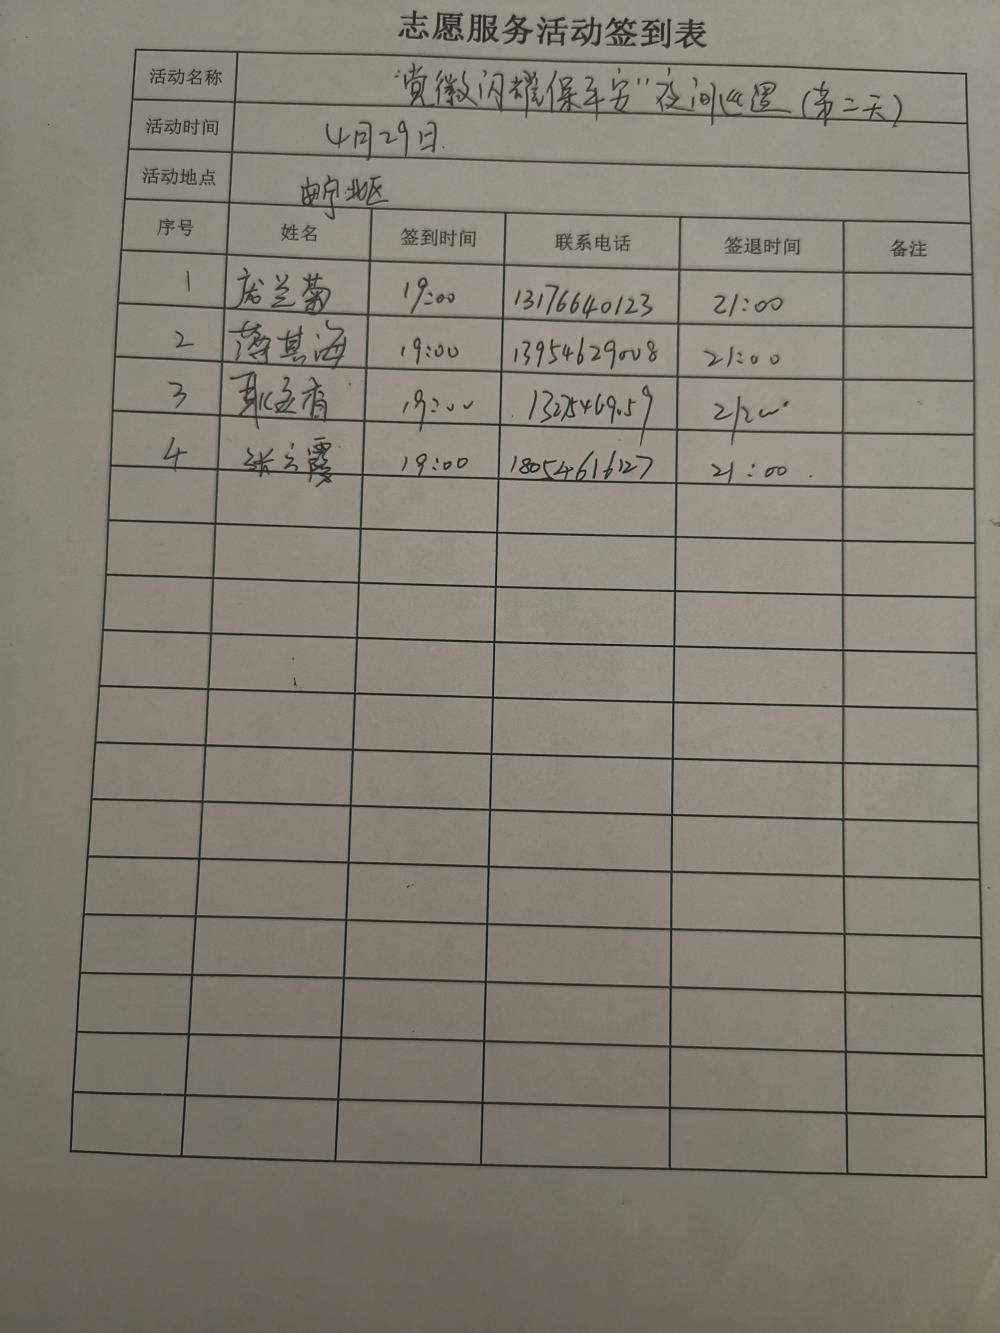 志愿服务活动签到表
活动名称 "党徽闪耀保平安"夜间巡逻(第二天)
活动时间 4月29日.
活动地点 宁北区
序号 姓名 签到时间 联系电话 签退时间 备注
1 兰菊 19:00 13176640123 21:00
2 薄其海 19:00 13954629008 21:00
3 耿玉有 19:00 13275469059 21:00
4 张云霞 19:00 18054616127 21:00